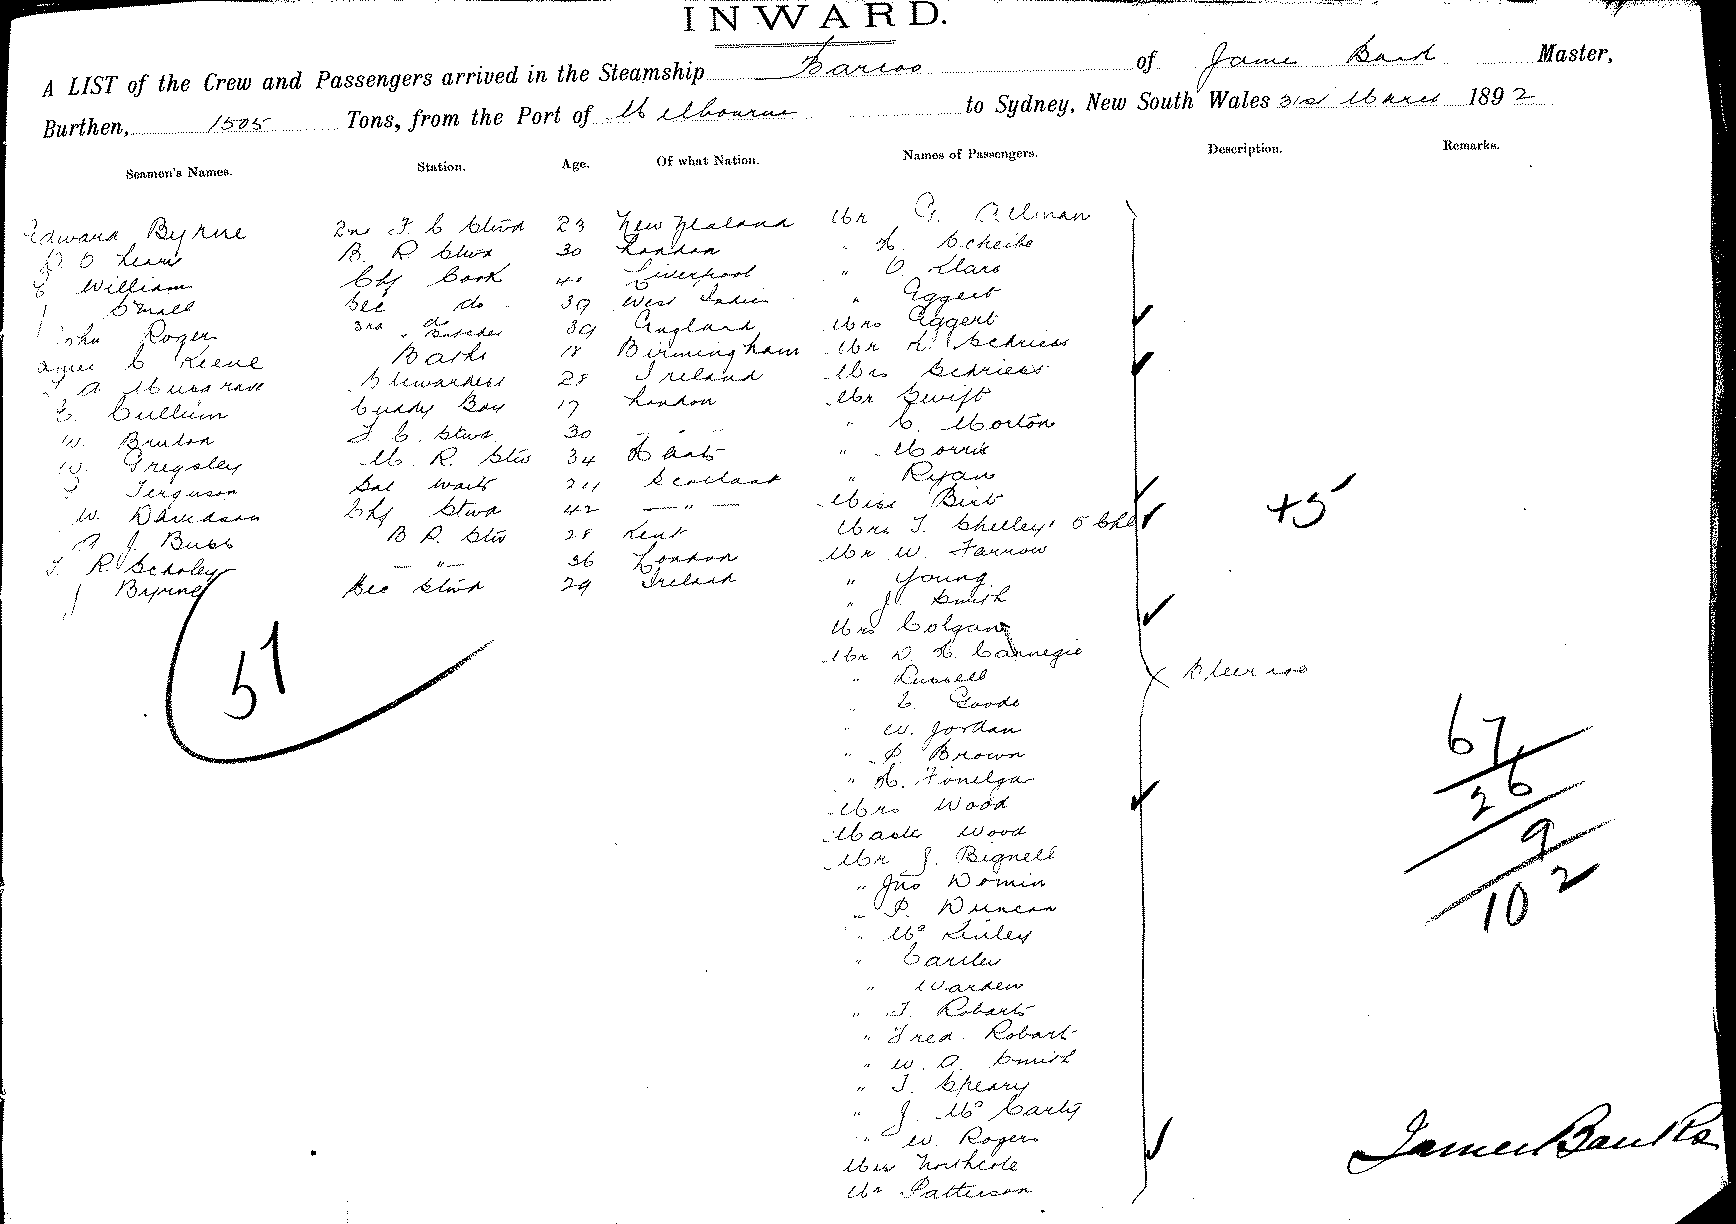 INWARD.
A LIST of the Crew and Passengers arrived in the Steamship Barcoo of James Banks Master,
Burthen, 1505 Tons, from the Port of Melbourne to Sydney, New South Wales 31st March 1892
Seamen's Names. Station. Age. Of what Nation. Names of Passengers. Description. Remarks.
Edward Byrne 2nd F C Stwd 23 New Zealand Mr G. Allman
B. R Stwd 30 London " H. Scheibe
E William Chf Cook 40 Liverpool " O.
Small Sec do 39 West Indies " Eggert
John Roger 3rd do & Butcher 39 England Mrs Eggert
James C Keene Baths 18 Birmingham Mr H.
A Musgrave Stewardess 28 Ireland Mrs
E. Cullum Cuddy Boy 17 London Mr Swift
W. Bruton F C. Stwd 30 - " - " C. Morton
W. Gregsley M. R. Stwd 34 Hants " Morris
J Ferguson Sal Waitr 24 Scotland " Ryan
W. Davidson Chf Stwd 42 — " — Miss Birt
A J. Bubb B R. Stwd 28 Kent Mrs T. Shelley & 5 Chl +5
F. R. Scholey — " — 36 London Mr W. Farrow
J Byrne Sec Stwd 29 Ireland " Young
" J. Smith
51
Mrs Colgan
Mr D. H. Carnegie
" Russell Steerage
" C. Goode
" W. Jordan
" P. Brown
" H.
Mrs Wood
Master Wood
Mr J. Bignell
" Jno Domin
" P. Duncan
" McKinley
" Carter
" Warden
" T. Robarts
" Fred. Robart
" W. A. Smith
" T. Speary
" J. McCarty
" W. Rogers
Miss Northcote
Mr Patterson
67
26
9
102
James Banks